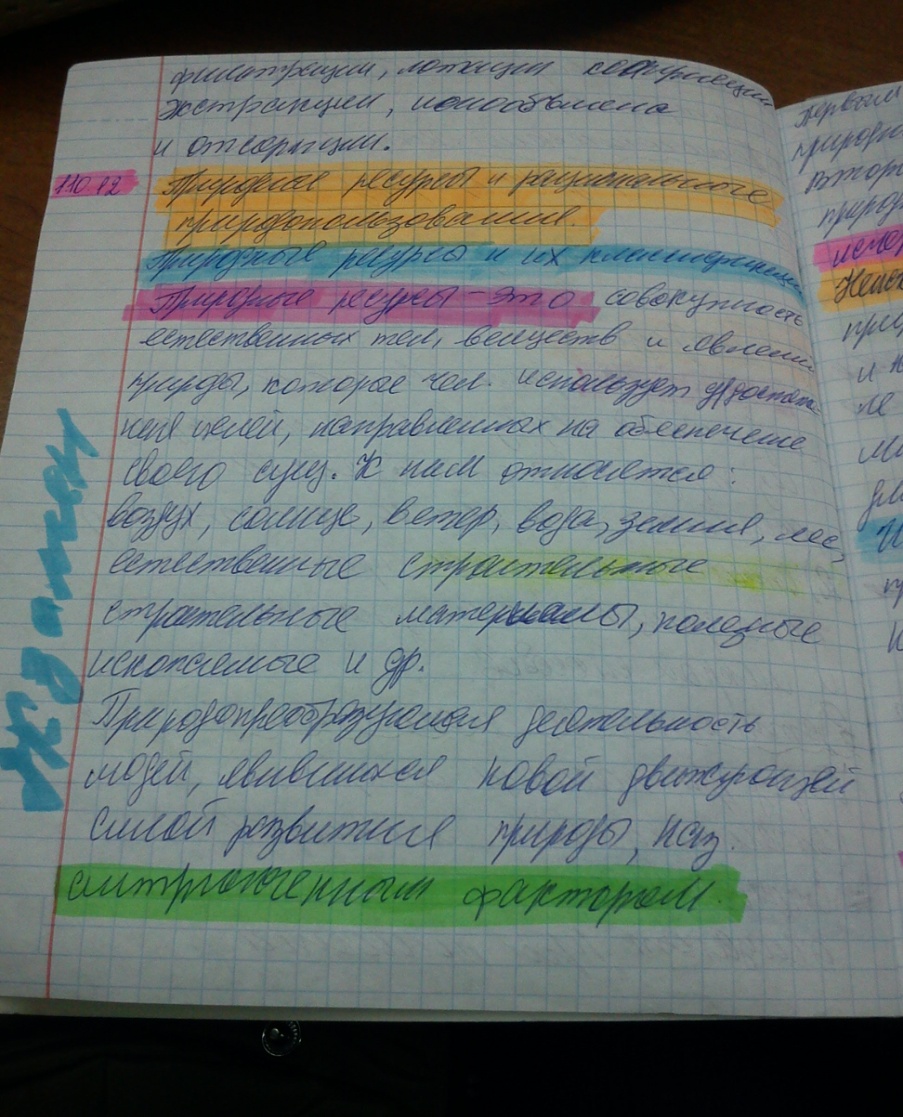 фильтрации, флотации, коагуляции
экстракции, ионообмена
и отсорпции.
110 02
Природные ресурсы и рациональное
природопользование.
Природные ресурсы и их классификация
Природные ресурсы - это совокупность
естественных тел, веществ и явлений
природы, которое чел. использует для достиже-
ния целей, направленных на обеспечение
своего сущ. К ним относятся:
воздух, солнце, ветер, вода, земля, лес,
естественные строительные
строительные материалы, полезные
ископаемые и др.
Природопреобразующая деятельность
людей, явившихся новой движущей
силой развития природы, наз.
антропогенным фактором.
Экзамен
Первым
природ
Втор
природ
исчер